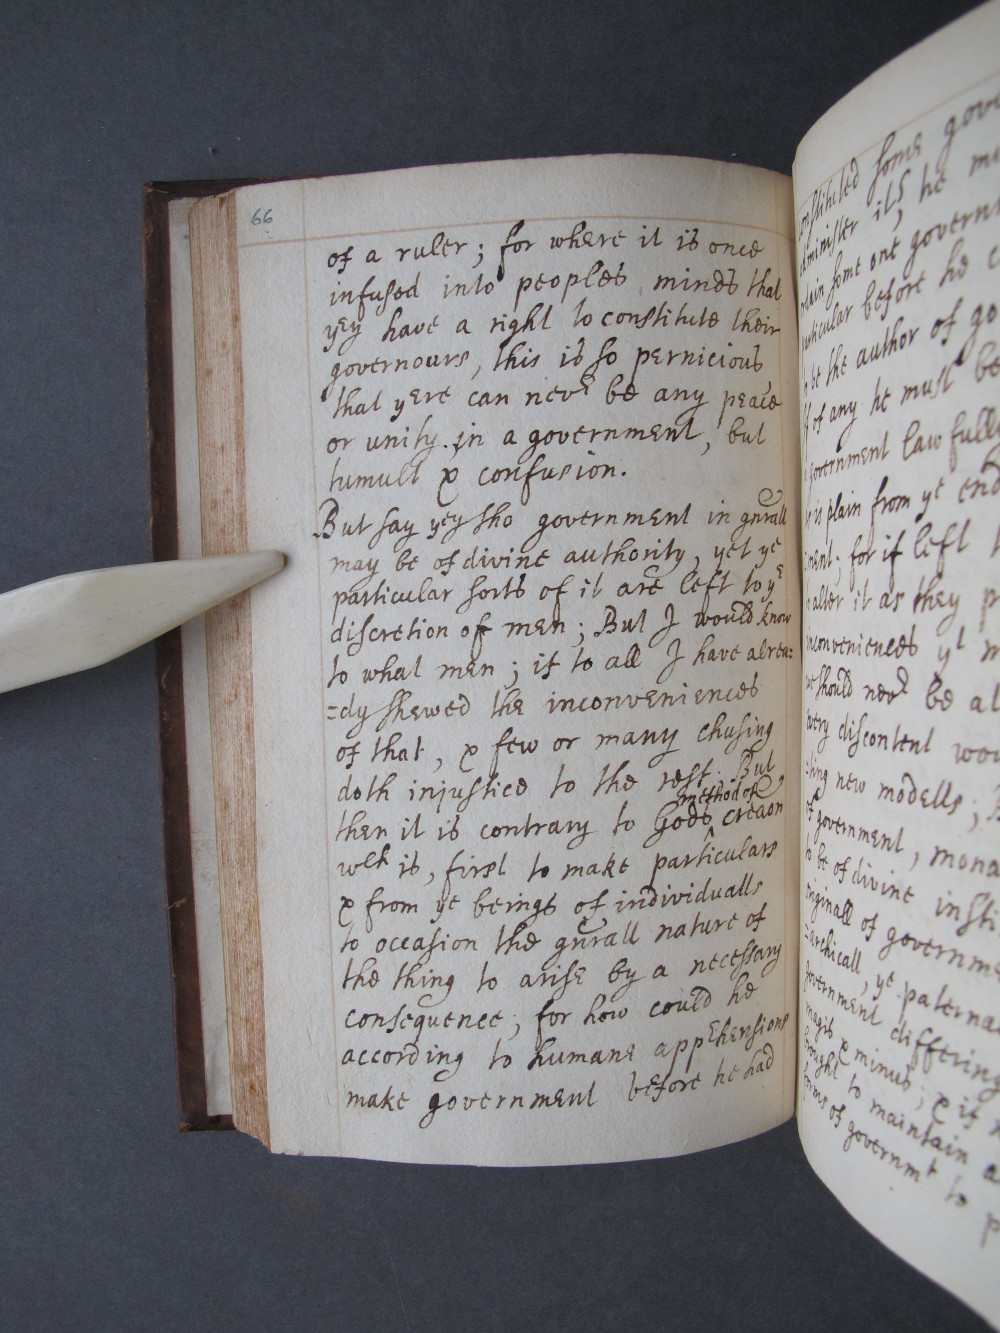 66
of a ruler; for where it is once
infused into peoples minds that
yey have a right to constitute their
governours, this is so pernicious
that yere can nevr be any peace
or unity in a government, but
tumult & confusion.
But say yey tho government in gnrall
may be of divine authority, yet ye
particular sorts of it are left to ye
discretion of men; But I would know
to what men; if to all I have alrea=
=dy shewed the inconveniences
of that, & few or many chusing
doth injustice to the rest. But
method of
then it is contrary to Gods creaon
wch is, first to make particulars
& from ye beings of individualls
to occasion the gnrall nature of
the thing to arise by a necessary
consequence; for how could he
according to humane apprehensions
make government before he had
constituted some
administer it, he
some one
particular before he
be the author of
of any he must be
government lawfully
is plain from ye end
for if left
alter it as they
inconveniences yt
we should nevr be
every discontent
=ting new modells;
of government,
to be of divine
originall of
=archicall, ye
government differing
magis & minus; & if
brought to maintain
forms of governmt to